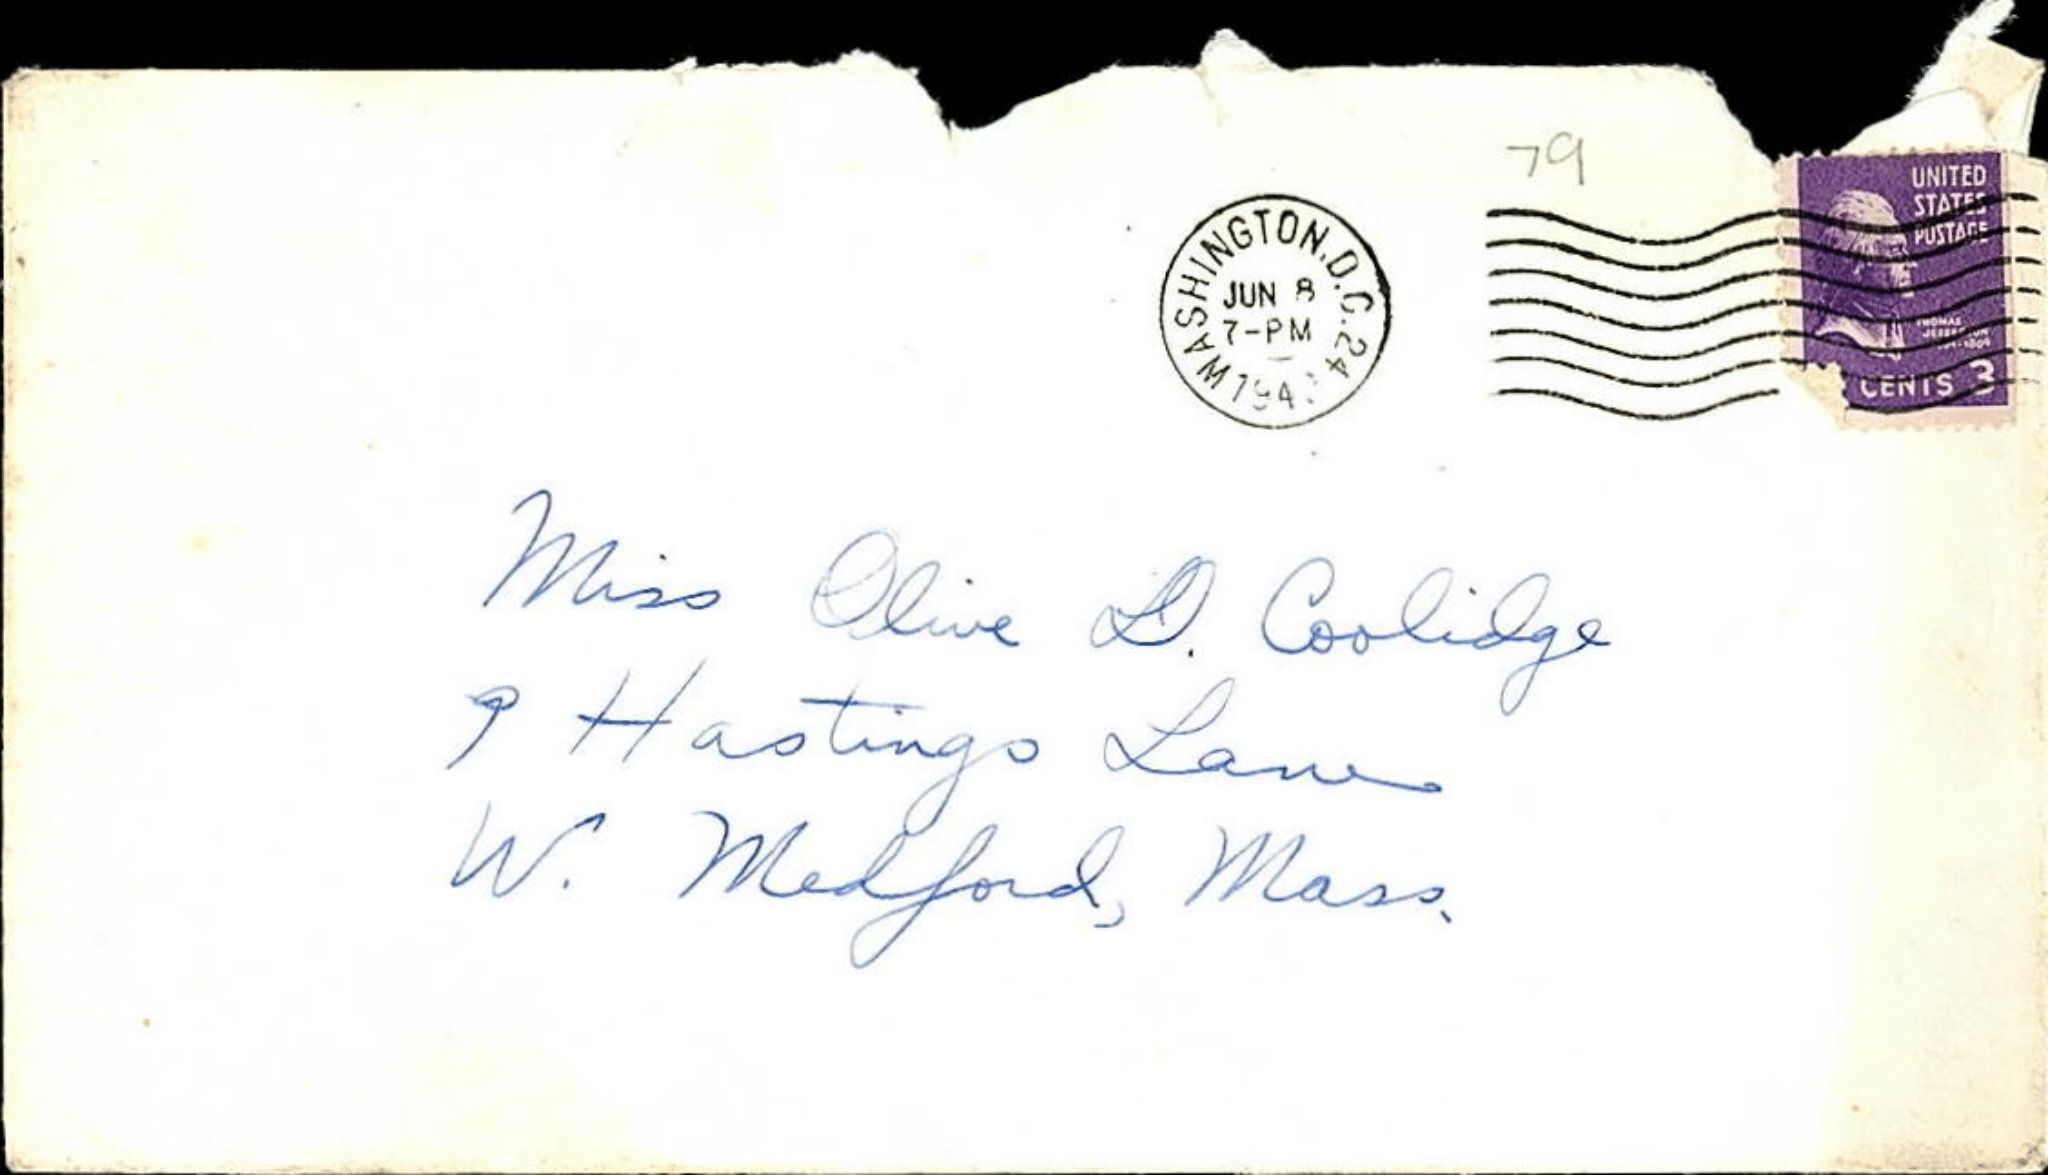 79
WASHINGTON, D.C. 24
JUN 8
7-PM
UNITED
STATES
POSTAGE
THOMAS
JEFFERSON
CENTS 3
Miss Olive D. Coolidge
9 Hastings Lane
W. Medford, Mass.